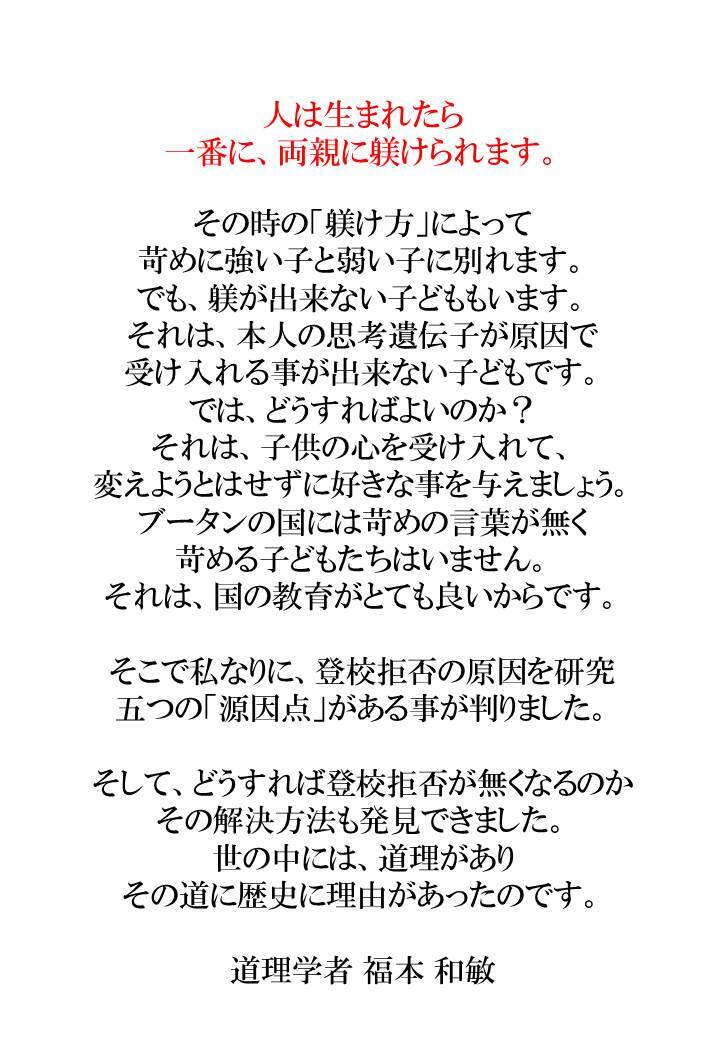 人は生まれたら
一番に、両親に躾けられます。
その時の「躾け方」によって
苛めに強い子と弱い子に別れます。
でも、躾が出来ない子どももいます。
それは、本人の思考遺伝子が原因で
受け入れる事が出来ない子どもです。
では、どうすればよいのか？
それは、子供の心を受け入れて、
変えようとはせずに好きな事を与えましょう。
ブータンの国には苛めの言葉が無く
苛める子どもたちはいません。
それは、国の教育がとても良いからです。
そこで私なりに、登校拒否の原因を研究
五つの「源因点」がある事が判りました。
そして、どうすれば登校拒否が無くなるのか
その解決方法も発見できました。
世の中には、道理があり
その道に歴史に理由があったのです。
道理学者 福本 和敏